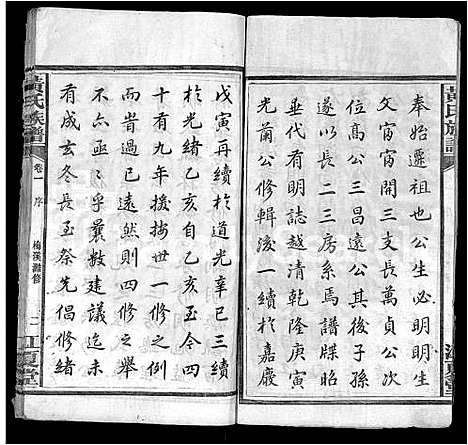 黃氏族譜
奉始遷祖也公生必明明生
文甯甯開三支長萬貞公次
位高公三昌遠公其後子孫
遂以長二三房系焉譜牒昭
垂代有明誌越清乾隆庚寅
光蘭公修輯浚一續於嘉慶
戊寅再續於道光辛巳三續
於光緒乙亥自乙亥至今四
十有九年援按卅一修之例
而眥過已遠然則四修之舉
不六亟亟乎曩數建議迄未
有成玄冬長至祭先倡修譜
黃氏族譜
卷一
序
梅溪濰修
二
江夏堂